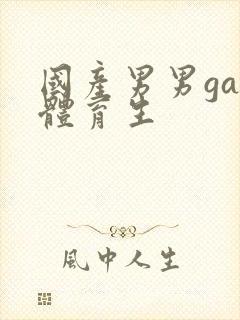 國產男男ga
體育生
風中人生